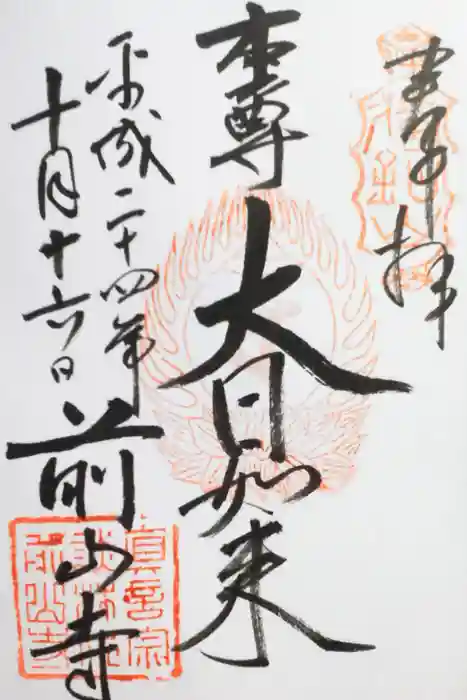 奉拝
本尊
大日如来
平成二十四年
十月十六日
前山寺
真言宗